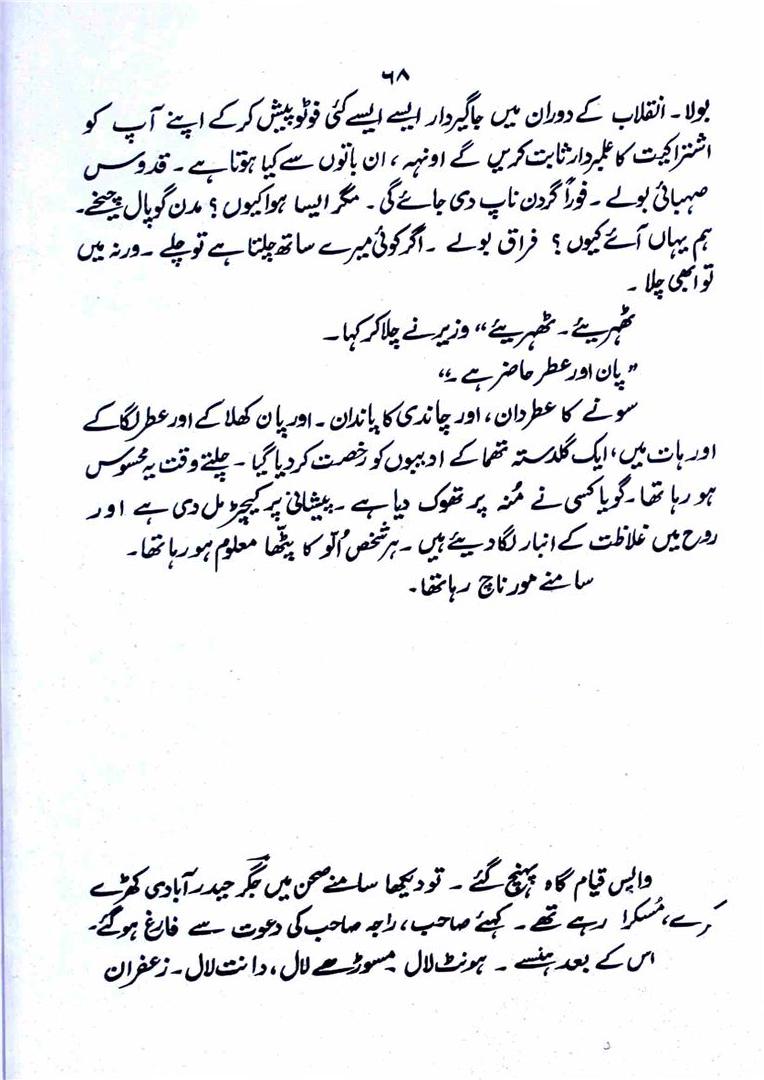 ۶۸
بولا۔ انقلاب کے دوران میں جاگیردار ایسے ایسے کئی فوٹو پیش کرکے اپنے آپ کو
اشتراکیت کا علمبردار ثابت کریں گے اونہہ، ان باتوں سے کیا ہوتا ہے۔ قدوس
صہبائی بولے۔ فوراً گردن ناپ دی جائے گی۔ مگر ایسا ہوا کیوں؟ مدن گوپال چیخے۔
ہم یہاں آئے کیوں؟ فراق بولے۔ اگر کوئی میرے ساتھ چلتا ہے تو چلے۔ ورنہ میں
تو ابھی چلا۔
ٹھہریئے۔ ٹھہریئے“ وزیر نے چلا کر کہا۔
”پان اور عطر حاضر ہے۔“
سونے کا عطردان، اور چاندی کا پاندان۔ اور پان کھلا کے اور عطر لگا کے
اور ہات میں، ایک گلدستہ تھما کے ادیبوں کو رخصت کر دیا گیا۔ چلتے وقت یہ محسوس
ہو رہا تھا۔ گویا کسی نے مُنہ پر تھوک دیا ہے۔ پیشانی پر کیچڑ مل دی ہے اور
روح میں غلاظت کے انبار لگا دیئے ہیں۔ ہر شخص اُلو کا پٹھّا معلوم ہو رہا تھا۔
سامنے مور ناچ رہا تھا۔
واپس قیام گاہ پہنچ گئے۔ تو دیکھا سامنے صحن میں جگر حیدرآبادی کھڑے
کھڑے، مُسکرا رہے تھے۔ کہئے صاحب، راجہ صاحب کی دعوت سے فارغ ہو گئے۔
اس کے بعد ہنسے۔ ہونٹ لال مسوڑھے لال، دانت لال۔ زعفران